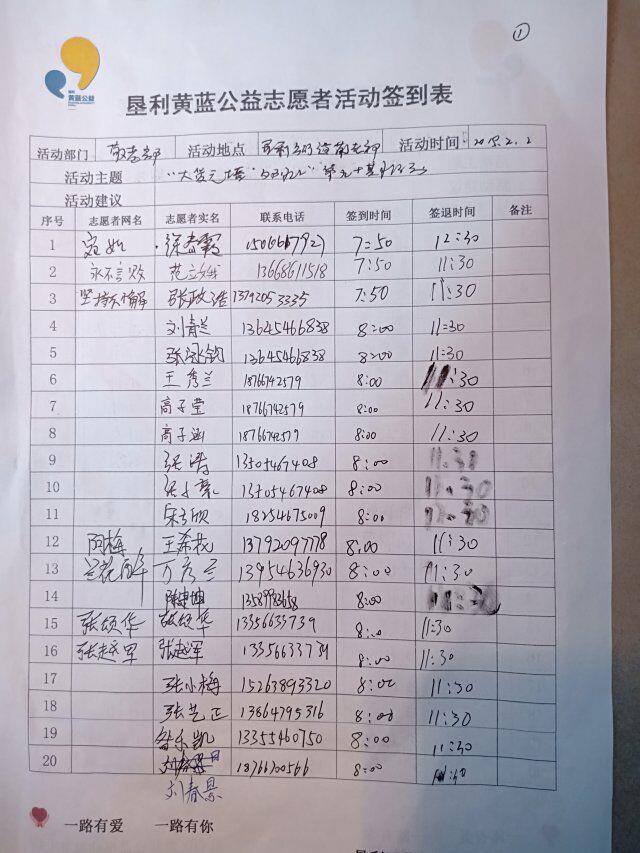 ①
黄蓝公益
垦利黄蓝公益志愿者活动签到表
活动部门 敬老部 活动地点 活动时间: 2018.2.2
活动主题
活动建议
序号 志愿者网名 志愿者实名 联系电话 签到时间 签退时间 备注
1 宛如 徐春霞 15066617927 7:50 12:30
2 永不言败 13668611518 7:50 11:30
3 坚持不懈 张政浩 13792053335 7:50 11:30
4 刘青兰 13645466838 8:00 11:30
5 13645466838 8:00 11:30
6 王秀兰 18766742579 8:00 11:30
7 高子莹 18766742579 8:00 11:30
8 高子涵 18766742579 8:00 11:30
9 张涛 13505467408 8:00 11:30
10 13505467408 8:00 11:30
11 18254675009 8:00 11:30
12 阿梅 王希花 13792097778 8:00 11:30
13 13954636930 8:00 11:30
14 8:00 11:30
15 张颂华 张颂华 13356633739 8:00 11:30
16 张越军 张越军 13356633739 8:00 11:30
17 张小梅 15263893320 8:00 11:30
18 张艺正 13864795316 8:00 11:30
19 13355460750 8:00 11:30
20 18766700566 8:00 11:30
刘春景
一路有爱 一路有你